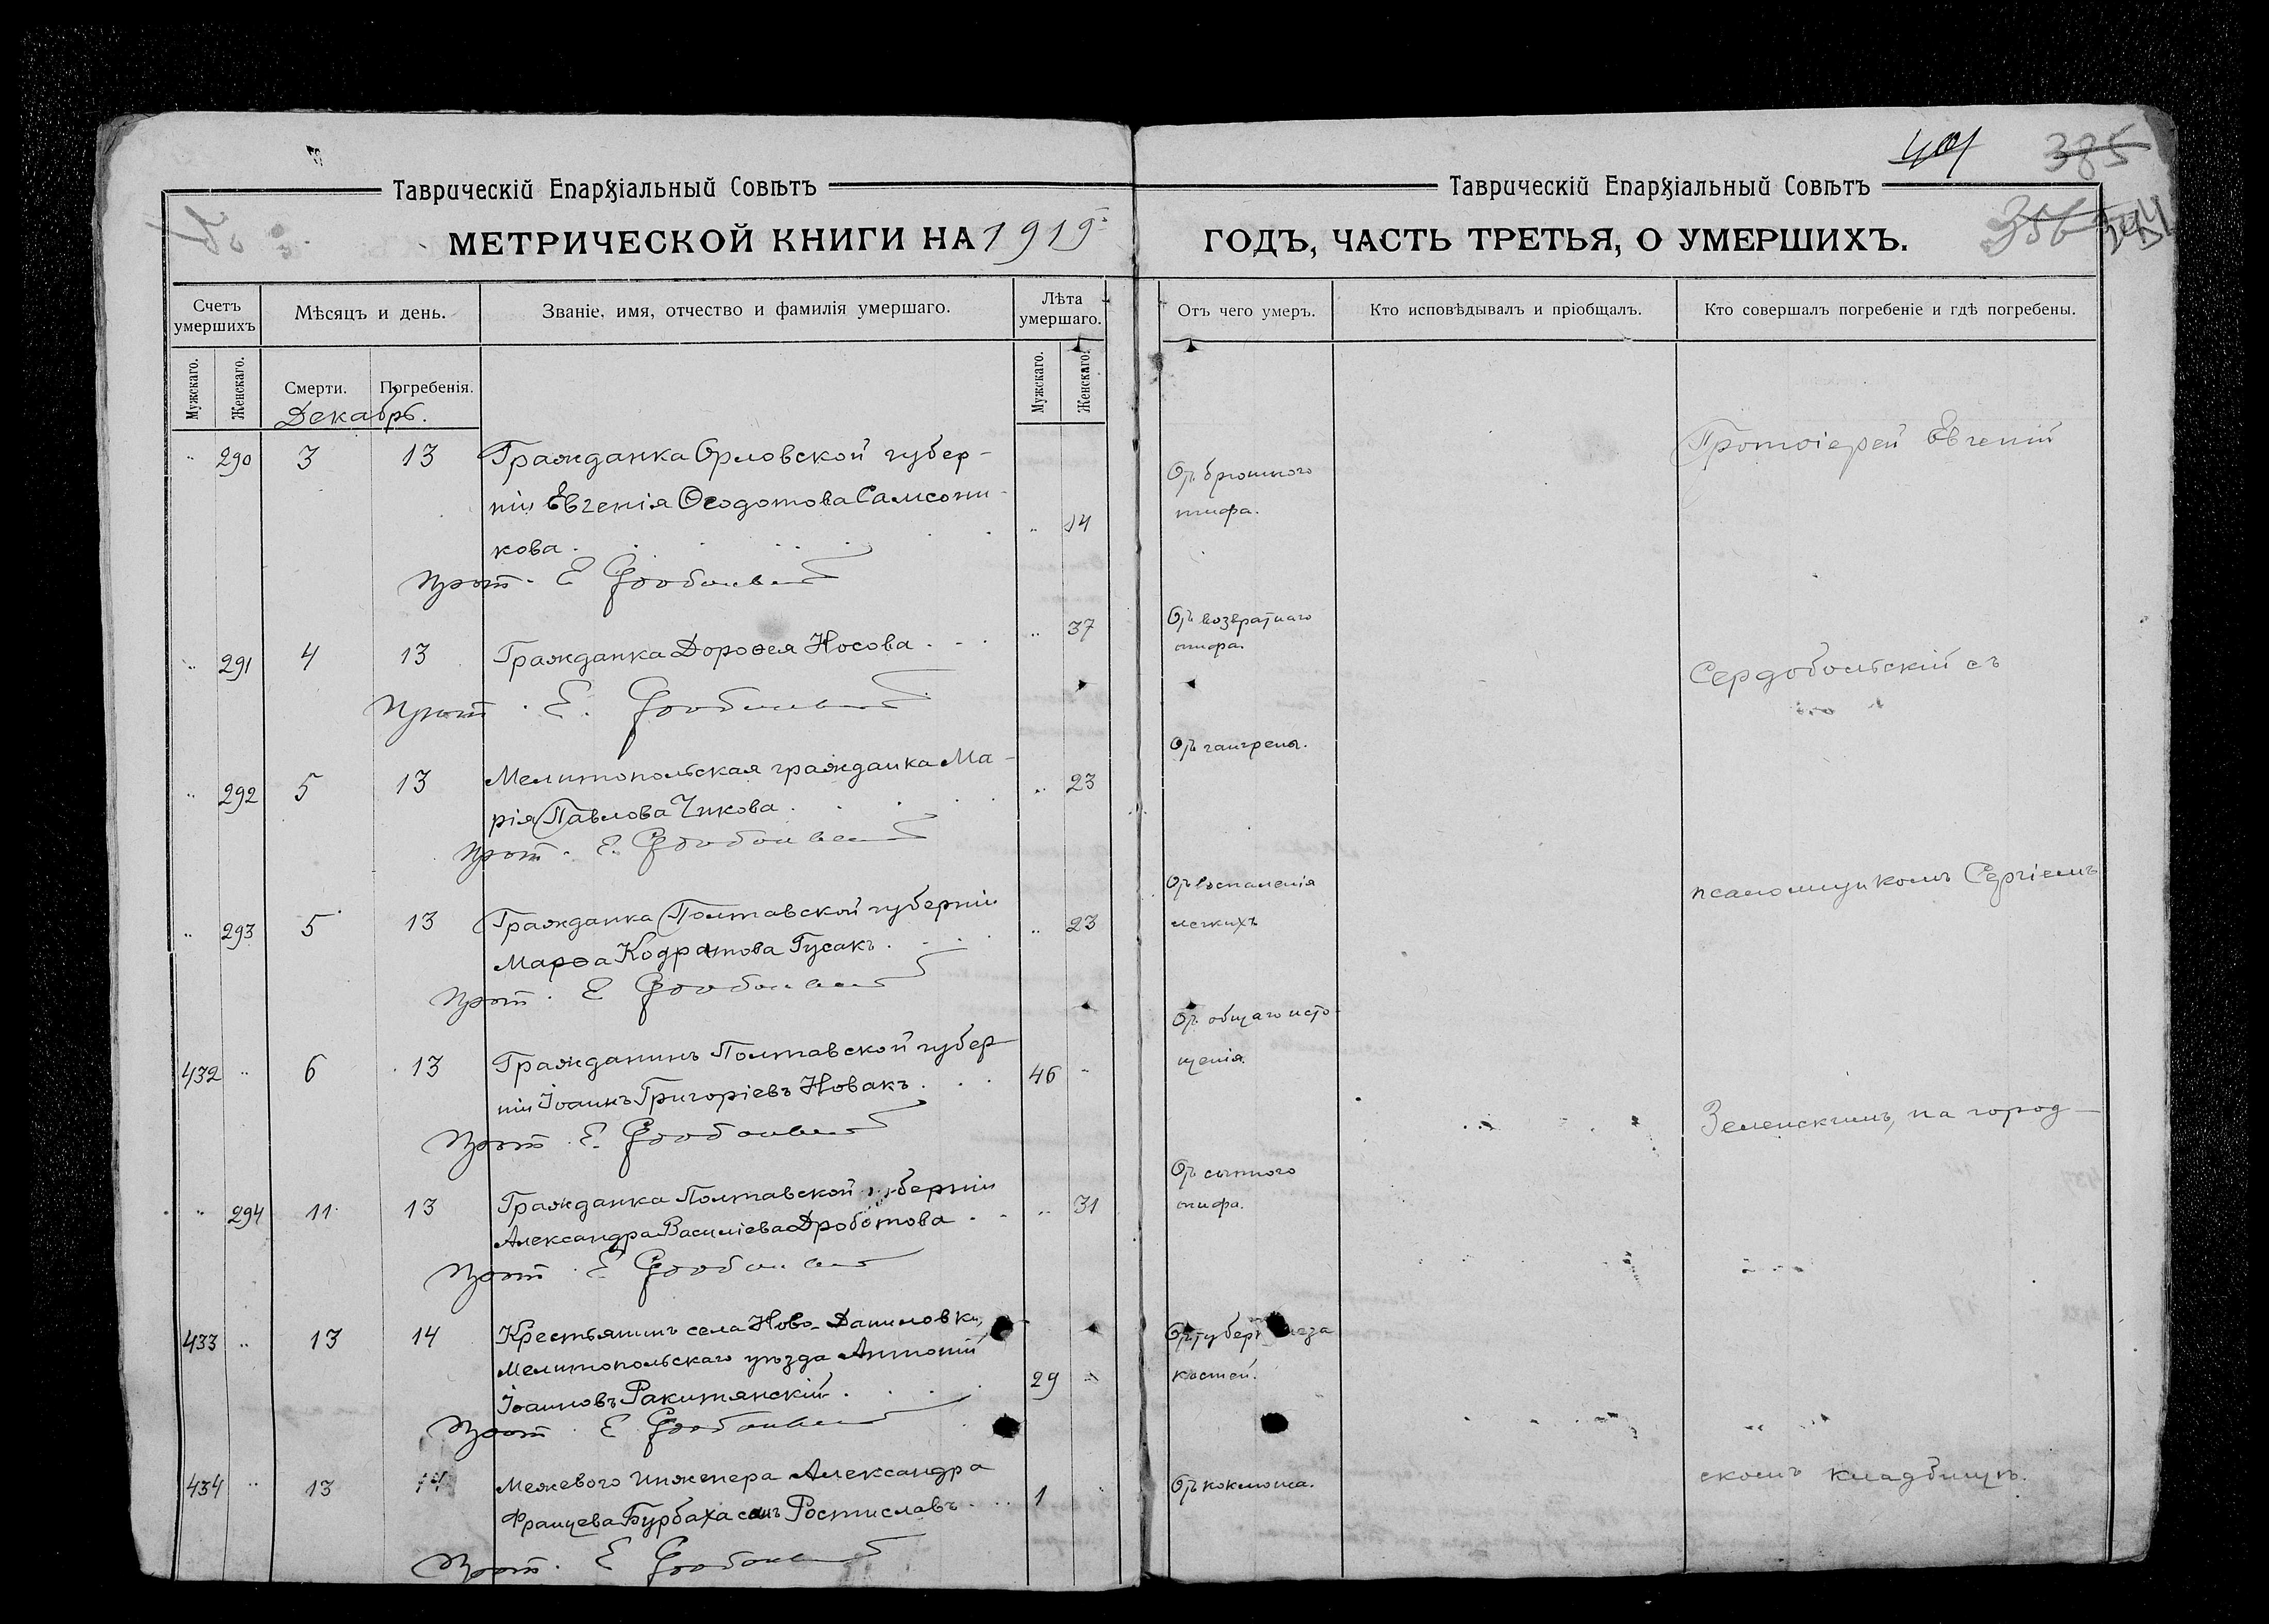 401
385
Таврическій Епархіальный Совѣтъ
Таврическій Епархіальный Совѣтъ
356
МЕТРИЧЕСКОЙ КНИГИ НА 1919
ГОДЪ, ЧАСТЬ ТРЕТЬЯ, О УМЕРШИХЪ.
Счетъ умершихъ
Мѣсяцъ и день.
Званіе, имя, отчество и фамилія умершаго.
Лѣта умершаго.
Отъ чего умеръ.
Кто исповѣдывалъ и пріобщалъ.
Кто совершалъ погребеніе и гдѣ погребены.
Мужскаго.
Женскаго.
Смерти.
Погребенія.
Мужскаго.
Женскаго.
Декабрь.
290 3 13 Гражданка Орловской губер-
ніи Евгенія Ѳеодотова Самсони-
кова. 14
Отъ брюшного
тифа.
Протоіерей Евгеній
Прот. Е Сердобольскій
291 4 13 Гражданка Дороѳея Носова 37
Отъ возвратнаго
тифа.
Сердобольскій съ
Прот. Е. Сердобольскій
292 5 13 Мелитопольская гражданка Ма-
рія Павлова Чикова. 23
Отъ гангрены.
Прот. Е. Сердобольскій
293 5 13 Гражданка Полтавской губерніи
Марѳа Кодратова Гусакъ. 23
Отъ воспаленія
легкихъ
псаломщикомъ Сергіемъ
Прот. Е Сердобольскій
432 6 13 Гражданинъ Полтавской губер-
ніи Іоаннъ Григоріевъ Новакъ. 46
Отъ общаго исто-
щенія.
Зеленскимъ, на город-
Прот. Е. Сердобольскій
294 11 13 Гражданка Полтавской губерніи
Александра Василіева Дроботова 31
Отъ сыпного
тифа.
Прот. Е Сердобольскій
433 13 14 Крестьянинъ села Ново-Даниловки,
Мелитопольскаго уѣзда Антоній
Іоанновъ Ракитянскій. 29
Отъ туберкулеза
костей.
Прот. Е Сердобольскій
434 13 14 Межевого инженера Александра
Францева Бурбаха сынъ Ростиславъ. 1
Отъ коклюша.
скомъ кладбищѣ.
Прот. Е Сердобольскій